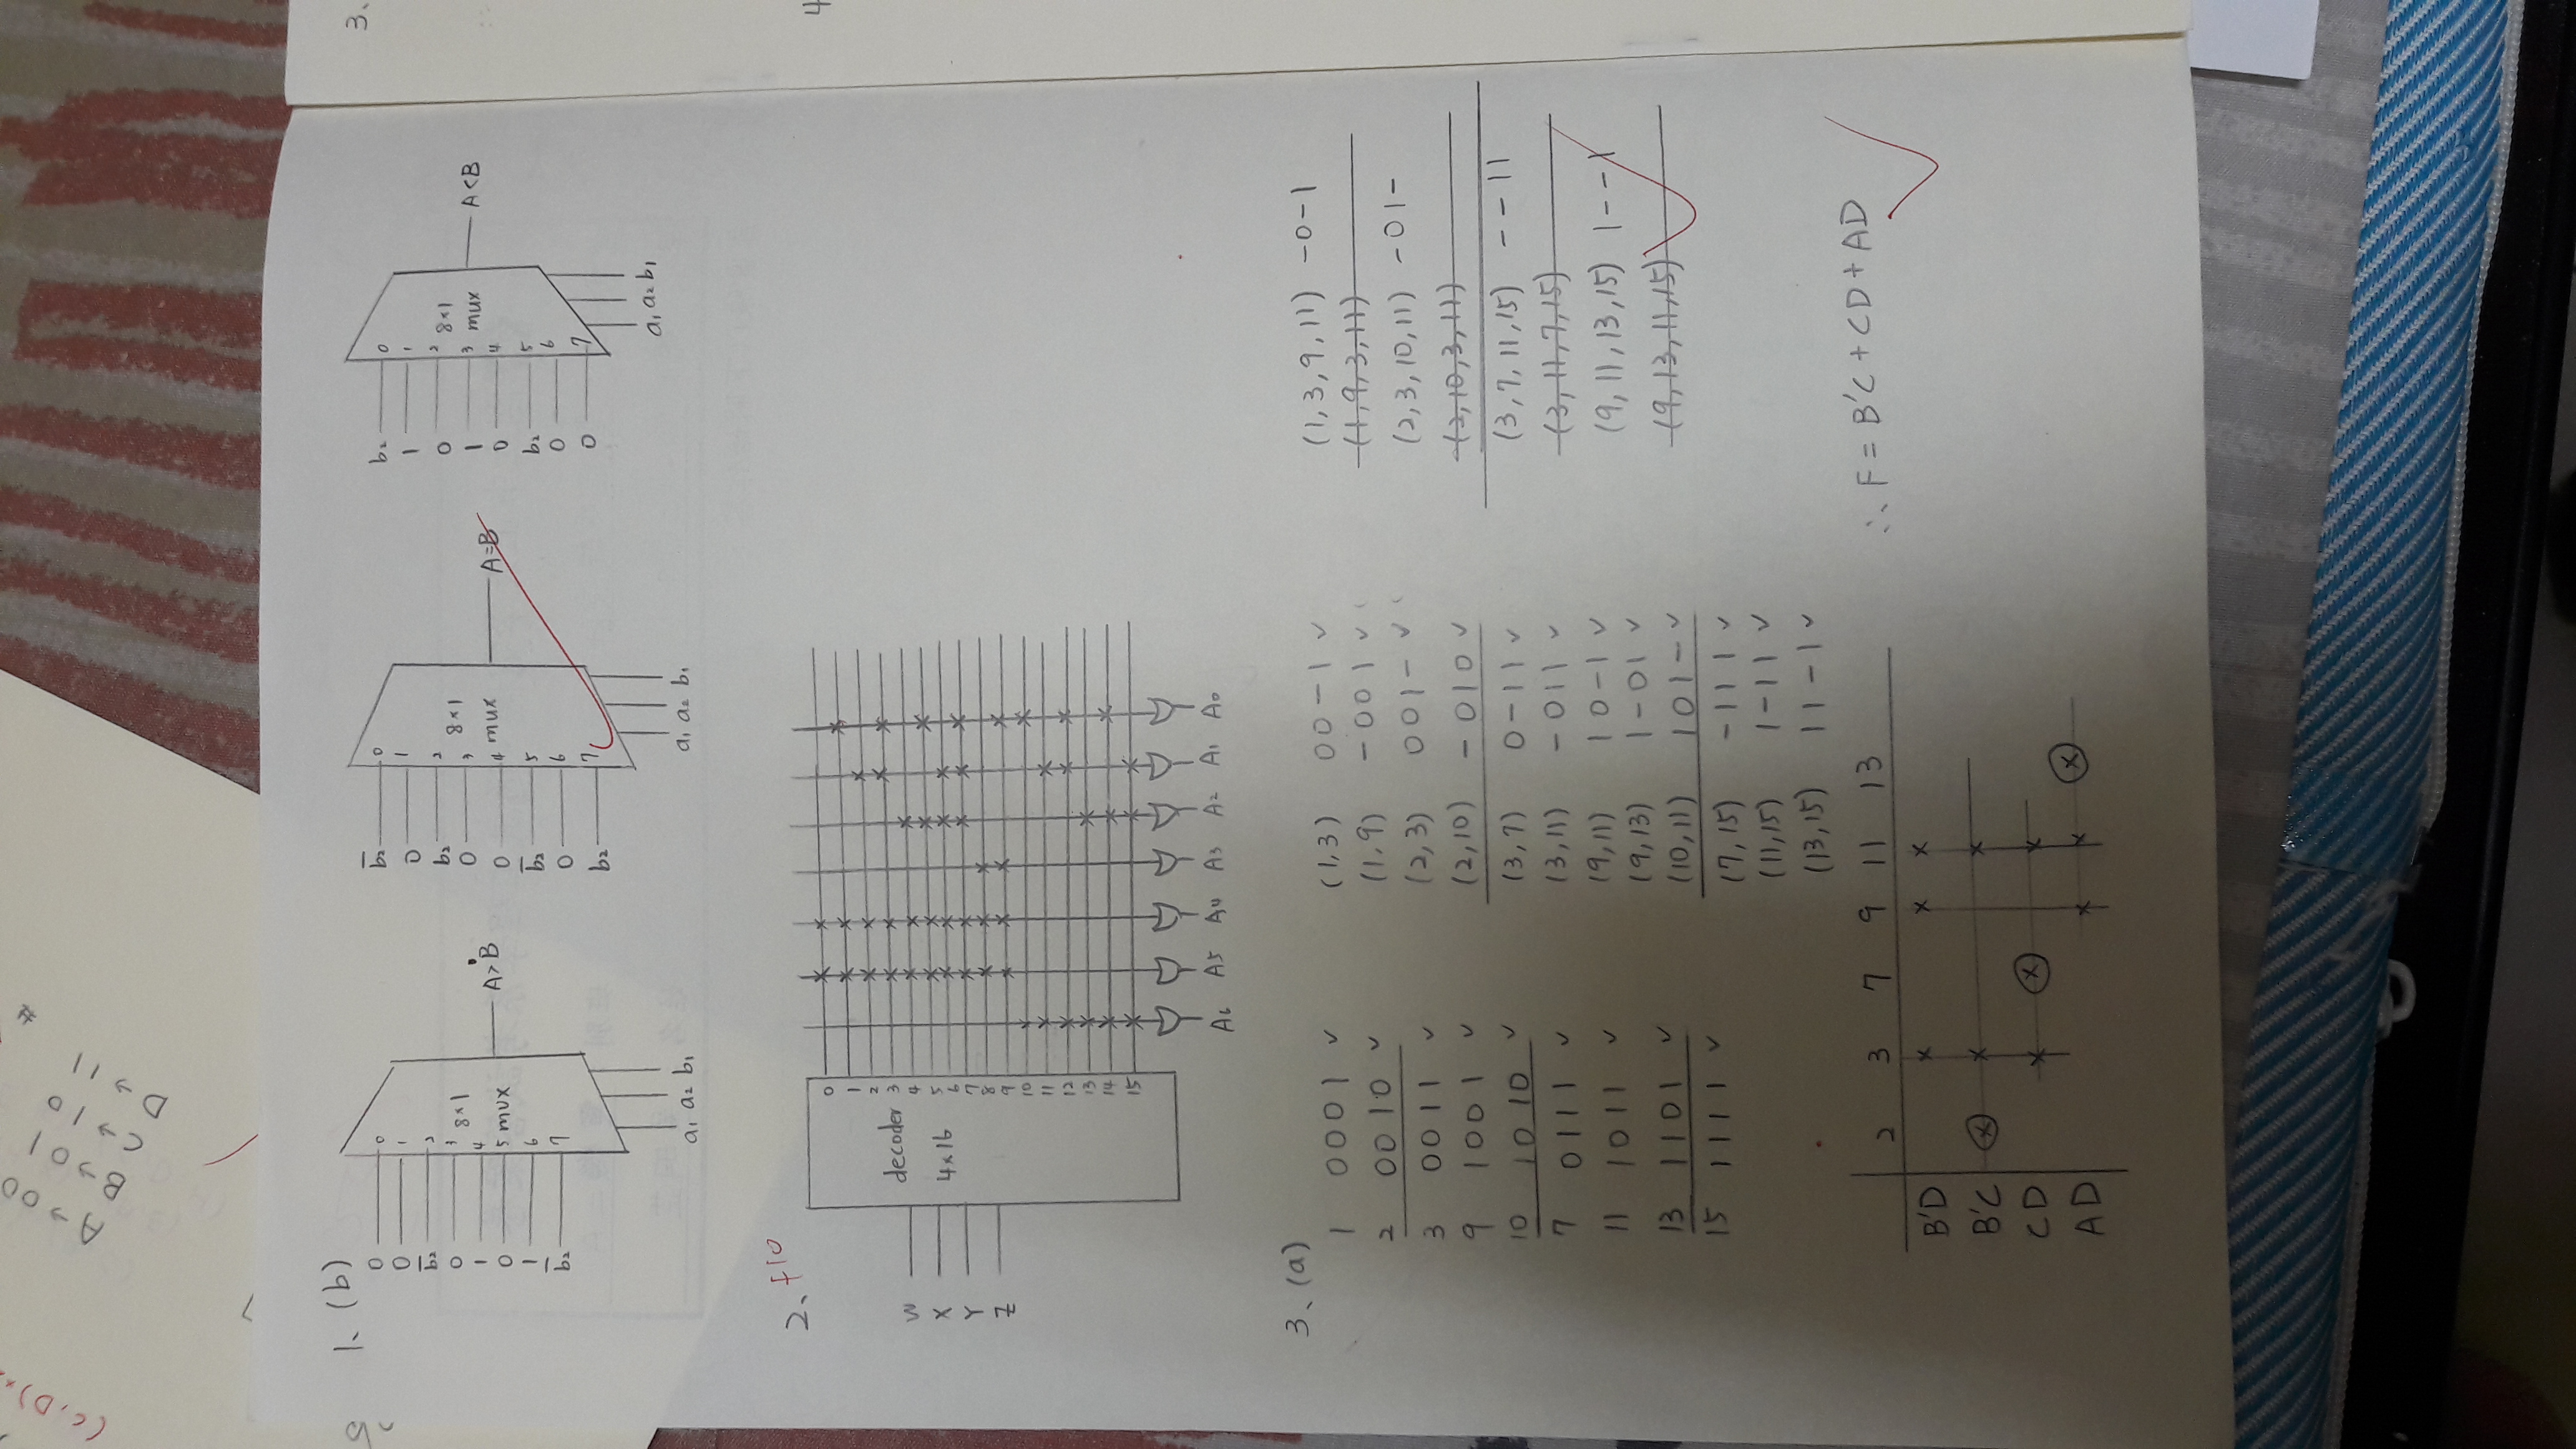 (C,D)
A→00
B→01
C→10
D→11
#
1、(b)
0 0
0 1
b̅₂ 2
0 3
1 4
0 5
1 6
b̅₂ 7
8×1
mux
A>B
a₁ a₂ b₁
b̅₂ 0
0 1
b₂ 2
0 3
0 4
b̅₂ 5
0 6
b₂ 7
8×1
mux
A=B
a₁ a₂ b₁
b₂ 0
1 1
0 2
1 3
0 4
b₂ 5
0 6
0 7
8×1
mux
A<B
a₁ a₂ b₁
3.
4
2、 +10
W
X
Y
Z
decoder
4×16
0
1
2
3
4
5
6
7
8
9
10
11
12
13
14
15
A₆ A₅ A₄ A₃ A₂ A₁ A₀
3、(a)
1 0001 ✓
2 0010 ✓
3 0011 ✓
9 1001 ✓
10 1010 ✓
7 0111 ✓
11 1011 ✓
13 1101 ✓
15 1111 ✓
(1,3) 00-1 ✓
(1,9) -001 ✓
(2,3) 001- ✓
(2,10) -010 ✓
(3,7) 0-11 ✓
(3,11) -011 ✓
(9,11) 10-1 ✓
(9,13) 1-01 ✓
(10,11) 101- ✓
(7,15) -111 ✓
(11,15) 1-11 ✓
(13,15) 11-1 ✓
(1,3,9,11) -0-1
(1,9,3,11)
(2,3,10,11) -01-
(2,10,3,11)
(3,7,11,15) --11
(3,11,7,15)
(9,11,13,15) 1--1
(9,13,11,15)
2 3 7 9 11 13
B'D × × ×
B'C × × ×
CD × × ×
AD × × ×
∴ F = B'C + CD + AD